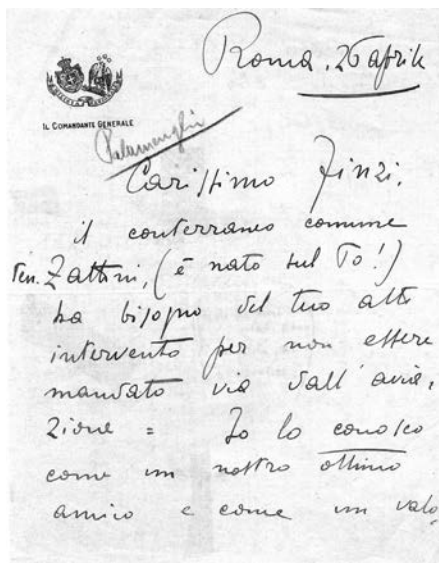 Roma, 26 aprile
IL COMANDANTE GENERALE
Palamenghi
Carissimo Finzi,
il conterraneo comune
Ten. Zattini, (è nato sul Po!)
ha bisogno del tuo alto
intervento per non essere
mandato via dall'avia,
zione = Io lo conosco
come un nostro ottimo
amico e come un valo